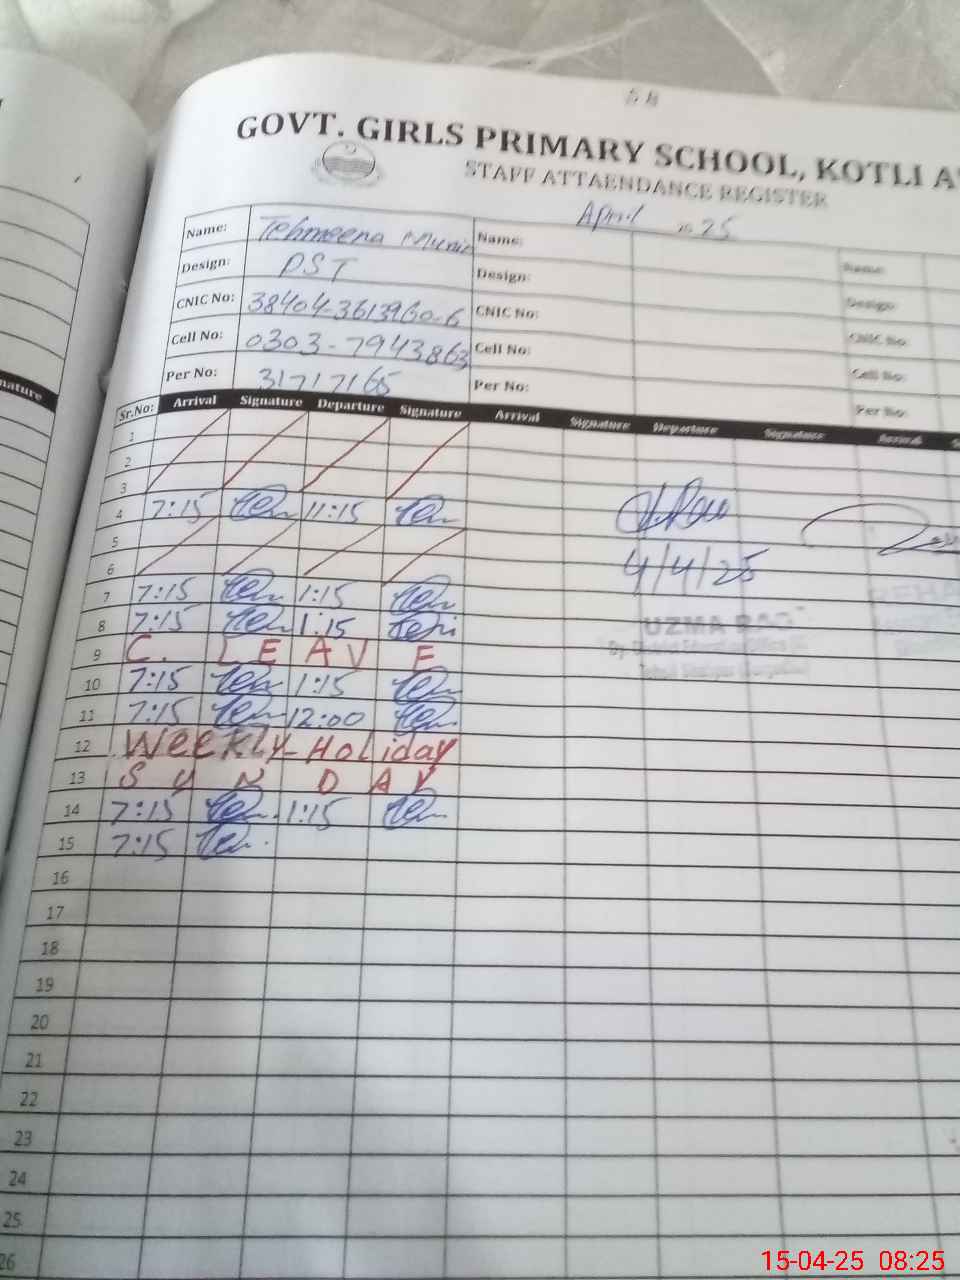 GOVT. GIRLS PRIMARY SCHOOL, KOTLI
STAFF ATTAENDANCE REGISTER
April 2025
Name: Tehmeena Munir Name: Name:
Design: PST Design: Design:
CNIC No: 38404-3613960-6 CNIC No: CNIC No:
Cell No: 0303-7943863 Cell No: Cell No:
Per No: 31717165 Per No: Per No:
Sr.No: Arrival Signature Departure Signature Arrival Signature Departure Signature Arrival
1
2
3
4 7:15 11:15
5
6
4/4/25
7 7:15 1:15
8 7:15 1:15
UZMA RAO
9 C. LEAVE
10 7:15 1:15
11 7:15 12:00
12 Weekly-Holiday
13 SUNDAY
14 7:15 1:15
15 7:15
16
17
18
19
20
21
22
23
24
25
26
15-04-25 08:25